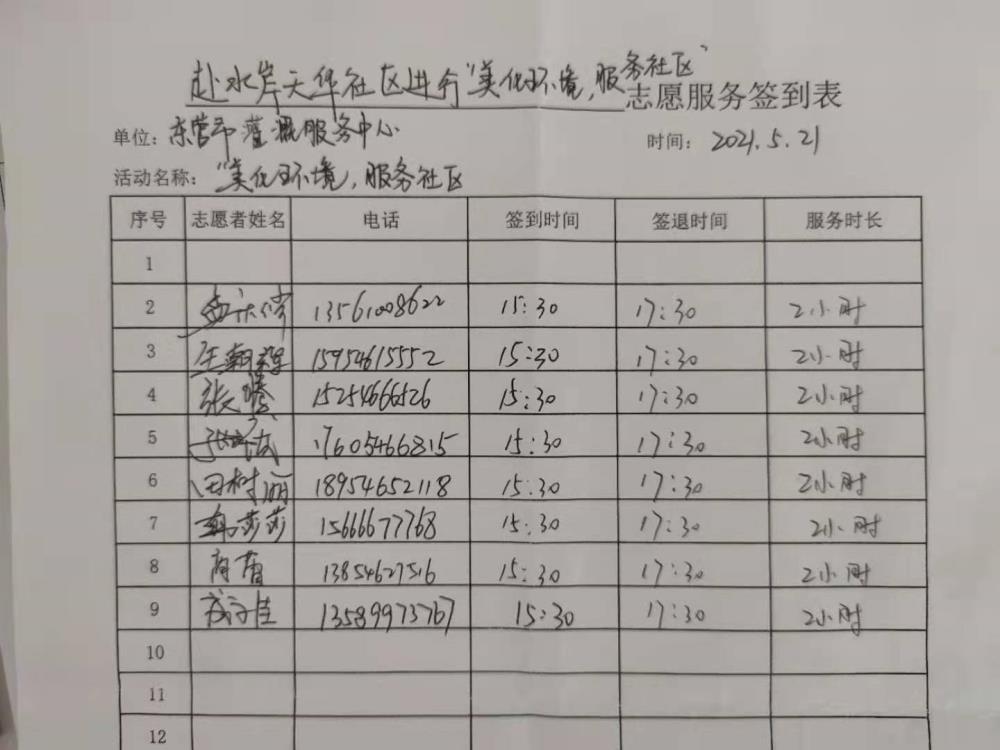 赴水岸天华社区进行"美化环境,服务社区"志愿服务签到表
单位:东营市灌溉服务中心 时间: 2021.5.21
活动名称:"美化环境,服务社区
序号 志愿者姓名 电话 签到时间 签退时间 服务时长
1
2 13561008622 15:30 17:30 2小时
3 15954615552 15:30 17:30 2小时
4 张 15254666526 15:30 17:30 2小时
5 17605466815 15:30 17:30 2小时
6 田树丽 18954652118 15:30 17:30 2小时
7 莎莎 15666677768 15:30 17:30 2小时
8 13854627516 15:30 17:30 2小时
9 13589973767 15:30 17:30 2小时
10
11
12